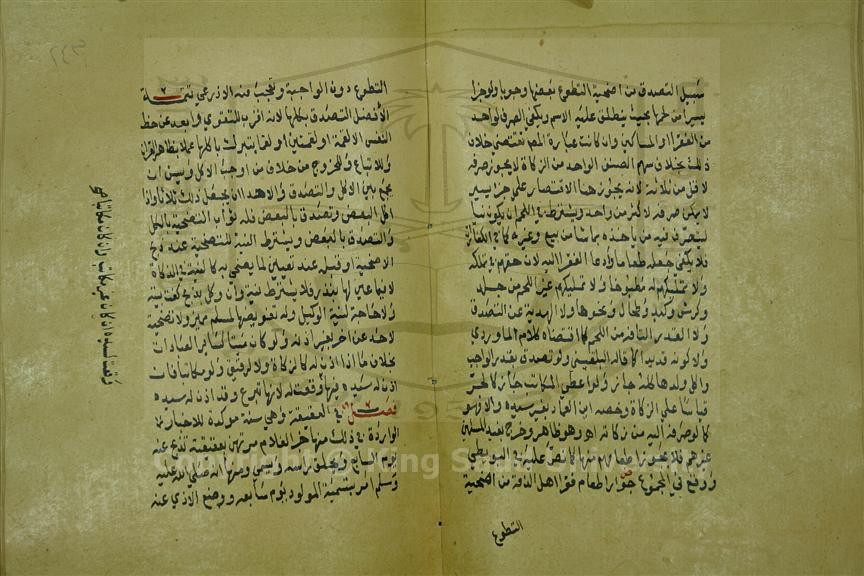 سبيل التصدق من اضحية التطوع ببعضها وجوبا ولو جزا
يسيرا من لحمها بحيث ينطلق عليه الاسم ويكفي الصرف لواحد
من الفقرا والمساكين وان كانت عبارة المص تقتضي خلاف
ذلك بخلاف سهم الصنف الواحد من الزكاة لا يجوز صرفه
لاقل من ثلاثة لانه يجوز هنا الاقتصار على جزا يسير
لا يمكن صرفه لاكثر من واحد ويشترط في اللحم ان يكون نيا
ليتصرف فيه من ياخذه بما شا من بيع وغيره كما في الكفارات
فلا يكفي جعله طعاما ودعا الفقرا اليه لان حقهم في تملكه
ولا تمليكهم له مطبوخا ولا تمليكهم غير اللحم من جلد
وكرش وكبد وطحال ونحوها ولا الهدية عن التصدق
ولا القدر التافه من اللحم كما اقتضاه كلام الماوردي
ولا كونه قديدا كما قاله البلقيني ولو تصدق بقدر الواجب
واكل ولدها كله جاز ولو اعطي المكاتب جاز كالحر
قياسا على الزكاة وخصه ابن العماد بغير سيده والا فهو
كما لو صرفه اليه من زكاته اه وهو ظاهر وخرج بقيد المسلمين
غيرهم فلا يجوز اطعامهم منها كما نص عليه في البويطي
ووقع في المجموع جواز اطعام فقرا اهل الذمة من اضحية
التطوع
التطوع دون الواجبة وتعجب منه الاذرعي تتمة
الافضل التصدق بكلها لانه اقرب للتقوي وابعد عن حظ
النفس الا لقمة او لقمتين او لقما يتبرك باكلها عملا بظاهر القران
وللاتباع وللخروج من خلاف من اوجب الاكل ويسن ان
يجمع بين الاكل والتصدق والاهدا ان يجعل ذلك ثلاثا واذا
اكل البعض وتصدق بالبعض فله ثواب التضحية بالكل
والتصدق بالبعض ويشترط النية للتضحية عند ذبح
الاضحية او قبله عند تعيين لما يضحي به كالنية في الزكاة
لا فيما عين لها بنذر فلا يشترط نية وان وكل بذبح كفت نيته
ولا حاجة لنية الوكيل وله تفويضها لمسلم مميز ولا تضحية
لاحد عن اخر بغير اذنه ولو كان ميتا كسائر العبادات
بخلاف ما اذا اذن له كالزكاة ولا لرقيق ولو مكاتبا فان
اذن له سيده فيها وقعت له لانها تبرع وقد اذن له سيده
فصل في العقيقة وهي سنة موكدة للاخبار
الواردة في ذلك منها خبر الغلام مرتهن بعقيقته تذبح عنه
يوم السابع ويحلق راسه ويسمي ومنها انه صلي الله عليه
وسلم امر بتسمية المولود يوم سابعه ووضع الاذي عنه
وقعت لسيده ان كان غير مكاتب وان كان مكاتبا صح